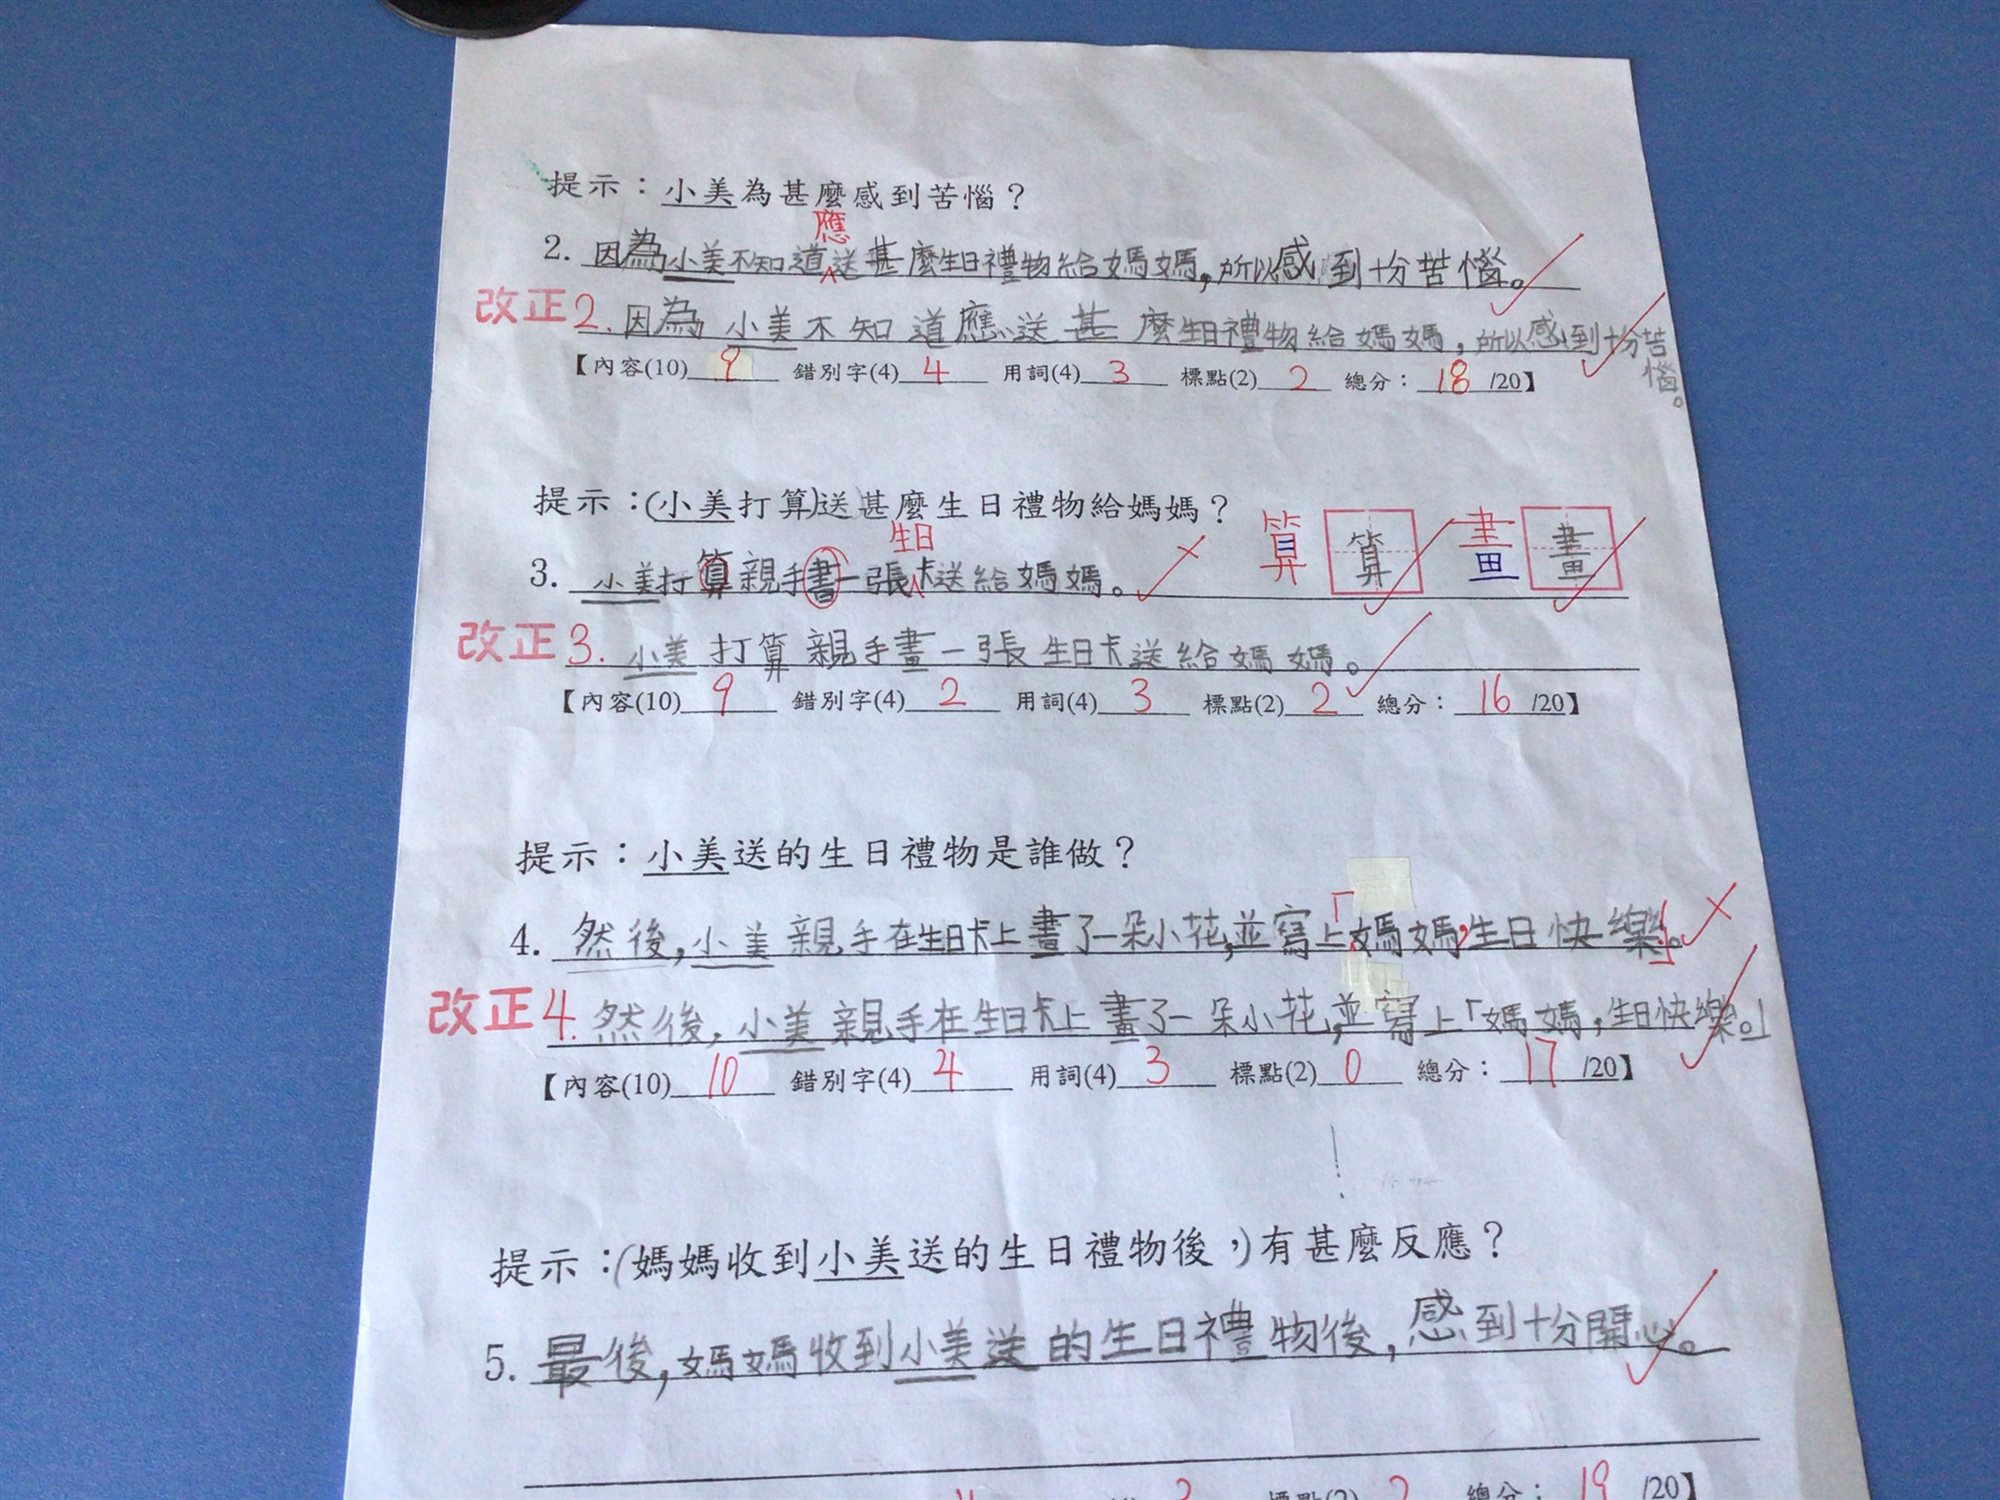 提示：小美為甚麼感到苦惱？
應
2. 因為小美不知道送甚麼生日禮物給媽媽，所以感到十分苦惱。
改正2. 因為小美不知道應送甚麼生日禮物給媽媽，所以感到十分苦惱。
【內容(10) 9 錯別字(4) 4 用詞(4) 3 標點(2) 2 總分： 18 /20】
提示：(小美打算)送甚麼生日禮物給媽媽？
算 算 畫 畫
生日
3. 小美打算親手書一張卡送給媽媽。
改正3. 小美打算親手畫一張生日卡送給媽媽。
【內容(10) 9 錯別字(4) 2 用詞(4) 3 標點(2) 2 總分： 16 /20】
提示：小美送的生日禮物是誰做？
4. 然後，小美親手在生日卡上畫了一朵小花，並寫上「媽媽，生日快樂。」
改正4. 然後，小美親手在生日卡上畫了一朵小花，並寫上「媽媽，生日快樂。」
【內容(10) 10 錯別字(4) 4 用詞(4) 3 標點(2) 0 總分： 17 /20】
提示：(媽媽收到小美送的生日禮物後，)有甚麼反應？
5. 最後，媽媽收到小美送的生日禮物後，感到十分開心。
標點(2) 2 總分： 19 /20】